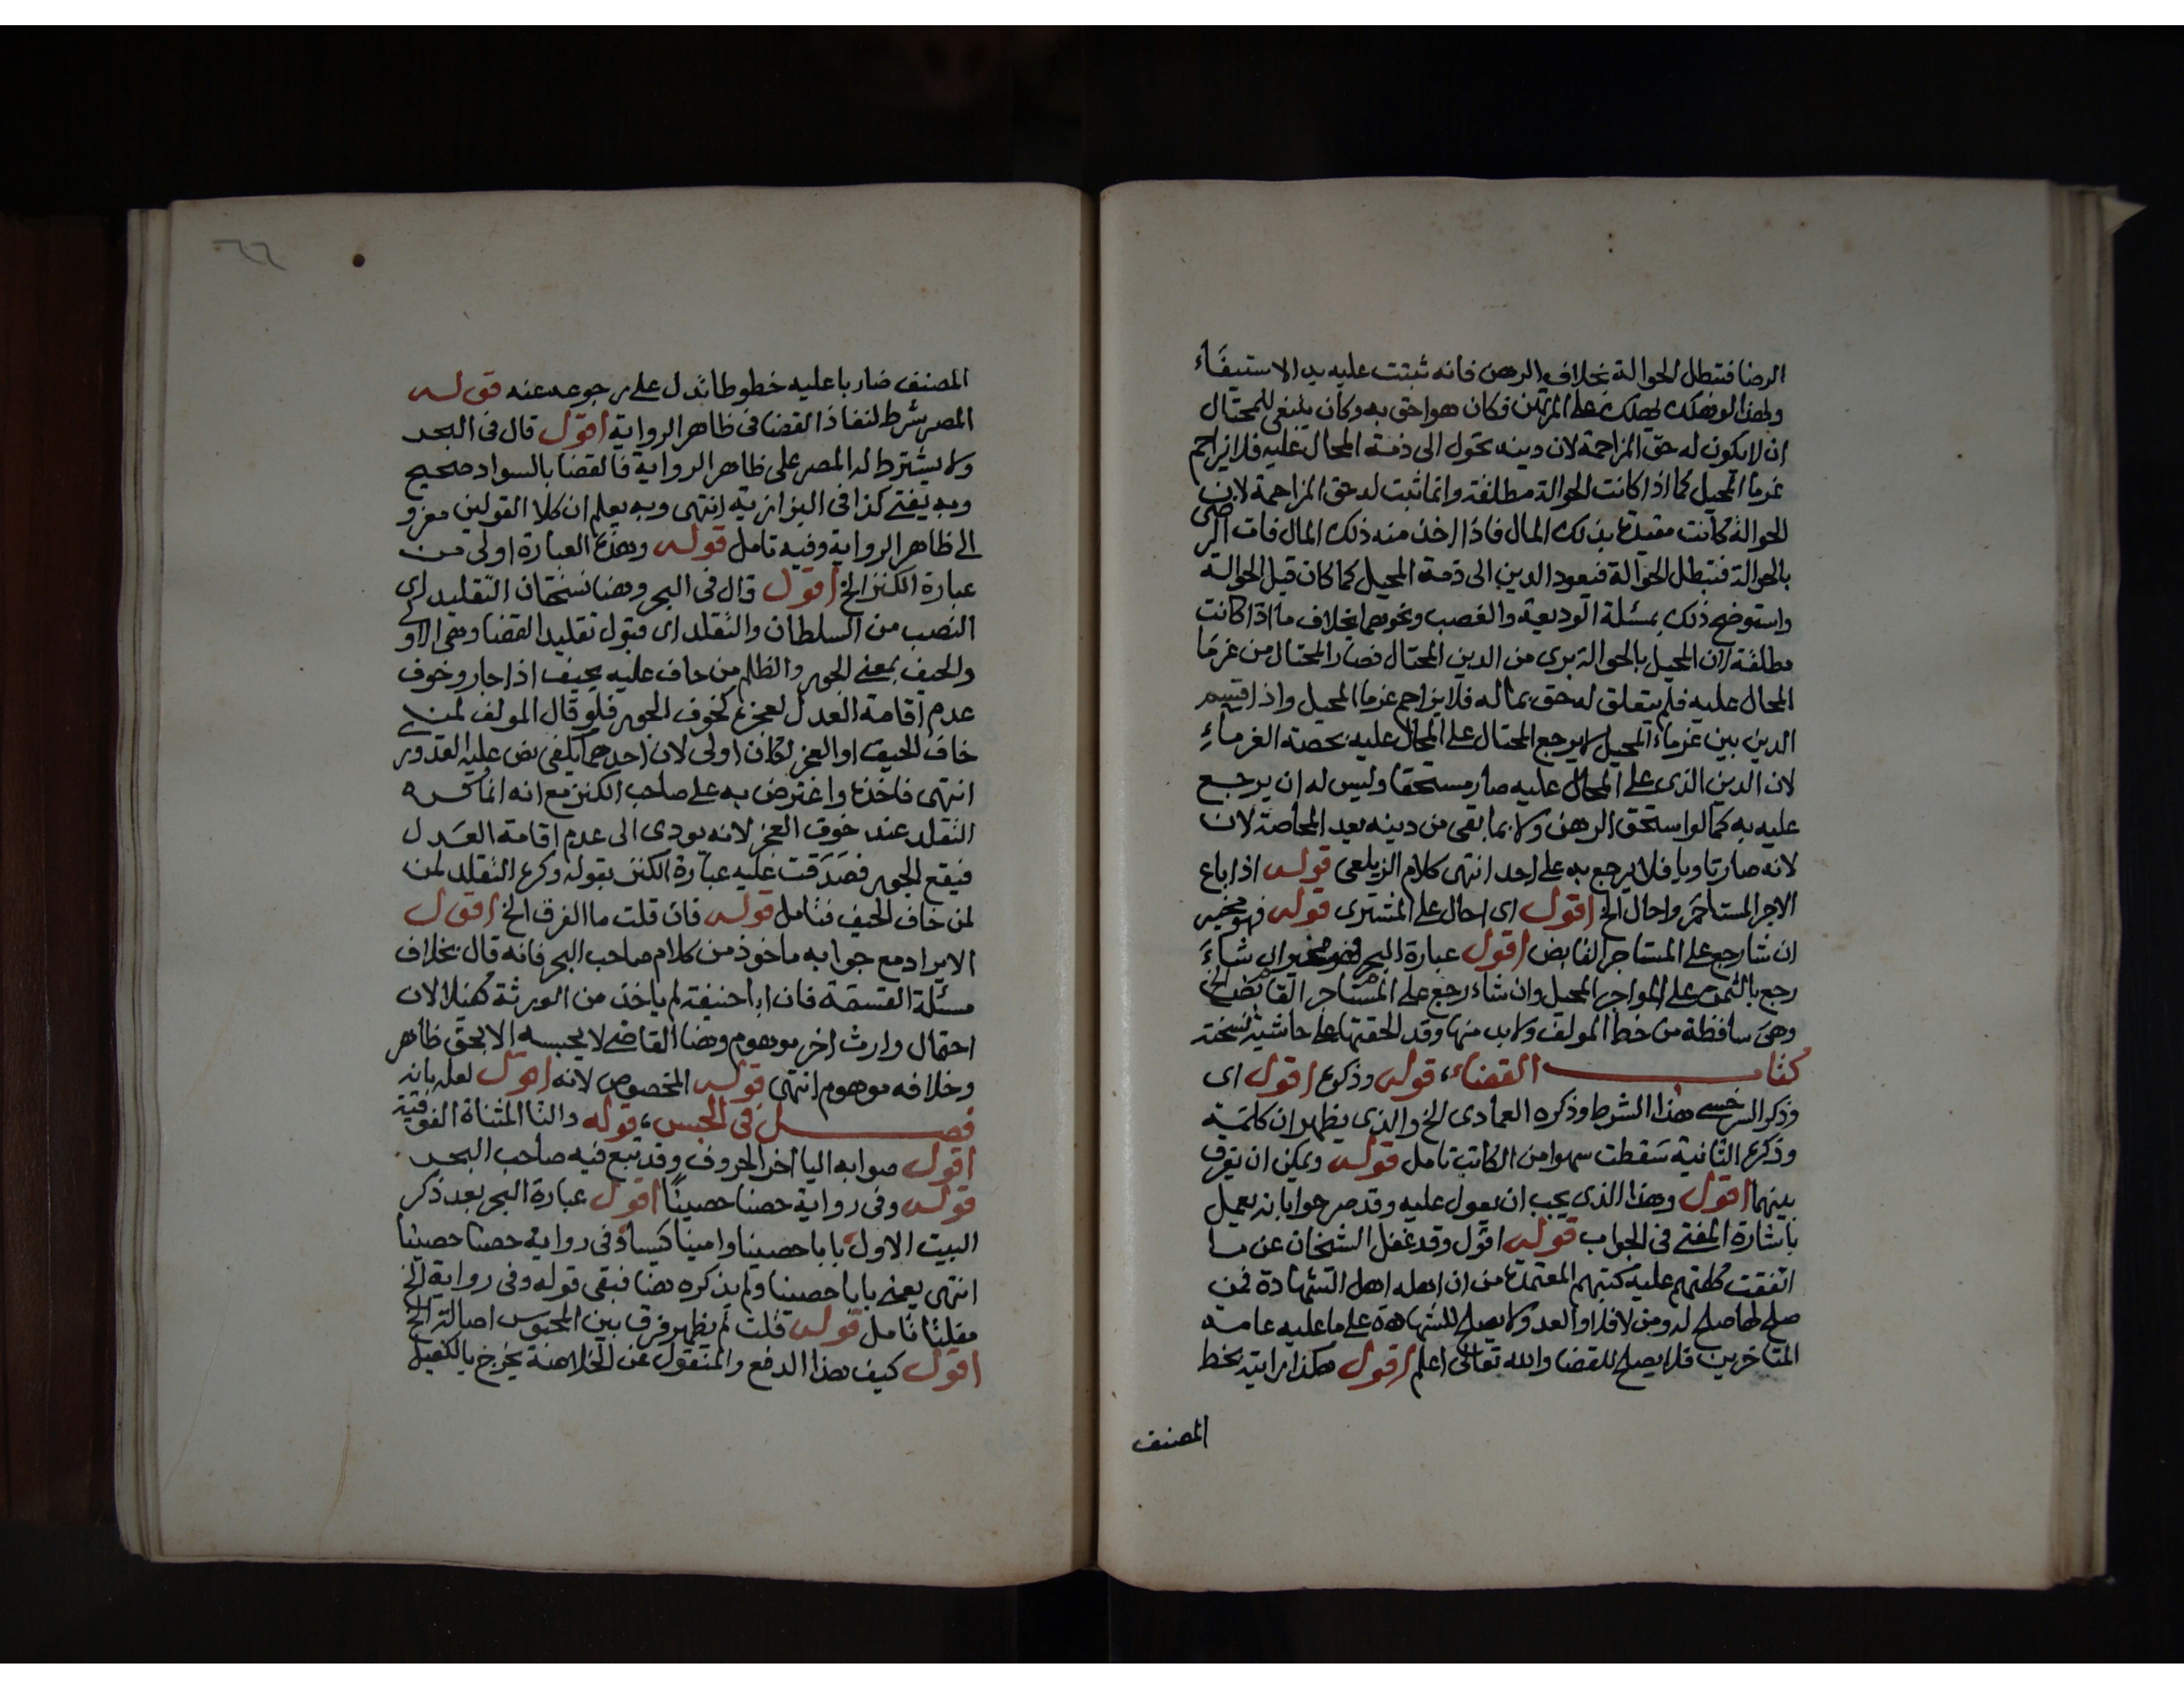 الرضا فتبطل الحوالة بخلاف الرهن فانه ثبتت عليه يد الاستيفاء
ولهذا لو هلك يهلك على المرتهن فكان هو احق به وكان ينبغي للمحتال
ان لا يكون له حق المزاحمة لان دينه تحول الى ذمة المحال عليه فلا يزاحم
غرما المحيل كما اذا كانت الحوالة مطلقة وانما ثبت له حق المزاحمة لان
الحوالة كانت مقيدة بذلك المال فاذا اخذ منه ذلك المال فات الرضى
بالحوالة فتبطل الحوالة فيعود الدين الى ذمة المحيل كما كان قبل الحوالة
واستوضح ذلك بمسئلة الوديعة والغصب ونحوهما بخلاف ما اذا كانت
مطلقة لان المحيل بالحوالة بري من الدين المحتال فصار المحتال من غرما
المحال عليه فلم يتعلق له حق بماله فلا يزاحم غرما المحيل واذا قسم
الدين بين غرماء المحيل لا يرجع المحتال على المحال عليه بحصة الغرماء
لان الدين الذى على المحال عليه صار مستحقا وليس له ان يرجع
عليه به كما لو استحق الرهن ولا بما بقى من دينه بعد المحاصة لان
لانه صار تاويا فلا يرجع به على احد انتهى كلام الزيلعى قوله اذا باع
الاجر المستاجر واحال الخ اقول اى احال على المشترى قوله فهو مخير
ان شا رجع على المستاجر القابض اقول عبارة البحر فهو مخير ان شاء
رجع بالثمن على المواجر المحيل وان شاء رجع على المستاجر القابض الخ
وهى ساقطة من خط المولف ولا بد منها وقد الحقتها على حاشية نسخته
كتاب القضاء، قوله وذكره اقول اى
وذكر السرخسى هذا الشرط وذكره العمادى الخ والذى يظهر ان كلمة
وذكره الثانية سقطت سهوا من الكاتب تامل قوله ويمكن ان يفرق
بينهما اقول وهذا الذى يجب ان يعول عليه وقد صرحوا بانه يعمل
باشارة المفتى فى الجواب قوله اقول وقد غفل الشيخان عن ما
اتفقت كلمتهم عليه كتبهم المعتمدة من ان اهله اهل الشهادة فمن
صلح لها صلح له ومن لا فلا والعدو لا يصلح للشهادة على ما عليه عامة
المتاخرين فلا يصلح للقضا والله تعالى اعلم اقول هكذا رايته بخط
المصنف
٦٦
المصنف ضاربا عليه خطوطا تدل على رجوعه عنه قوله
المصر شرط لنفاذ القضا فى ظاهر الرواية اقول قال فى البحر
ولا يشترط له المصر على ظاهر الرواية فالقضا بالسواد صحيح
وبه يفتى كذا فى البزازية انتهى وبه يعلم ان كلا القولين معزو
الى ظاهر الرواية وفيه تامل قوله وهذه العبارة اولى من
عبارة الكنز الخ اقول قال فى البحر وهنا نسختان التقليد اى
النصب من السلطان والتقلد اى قبول تقليد القضا وهى الاولى
والحيف بمعنى الجور والظلم من حاف عليه يحيف اذا جار وخوف
عدم اقامة العدل لعجزه كخوف الجور فلو قال المولف لمن
خاف الحيف او العجز لكان اولى لان احدهما يكفى نص عليه القدورى
انتهى فاخذه واعترض به على صاحب الكنز مع انه انما كره
التقلد عند خوف العجز لانه يودى الى عدم اقامة العدل
فيقع الجور فصدقت عليه عبارة الكنز بقوله وكره التقلد لمن
لمن خاف الحيف فتامل قوله فان قلت ما الفرق الخ اقول
الايراد مع جوابه ماخوذ من كلام صاحب البحر فانه قال بخلاف
مسئلة القسمة فان ابا حنيفة لم ياخذ من الورثة كفيلا لان
احتمال وارث اخر موهوم وهنا القاضى لا يحبسه الا بحق ظاهر
وخلافه موهوم انتهى قوله المخصوص لانه اقول لعله بانه
فصل فى الحبس، قوله والتا المثناة الفوقية
اقول صوابه اليا اخر الحروف وقد تبع فيه صاحب البحر
قوله وفى رواية حصنا حصينا اقول عبارة البحر بعد ذكر
البيت الاول بابا حصينا وامينا كيسا وفى رواية حصنا حصينا
انتهى يعنى بابا حصينا ولم يذكره هنا فبقى قوله وفى رواية الخ
مفلتا تامل قوله قلت لم يظهر فرق بين المحبوس اصالة الخ
اقول كيف هذا الدفع والمنقول عن الخلاصة يخرج بالكفيل